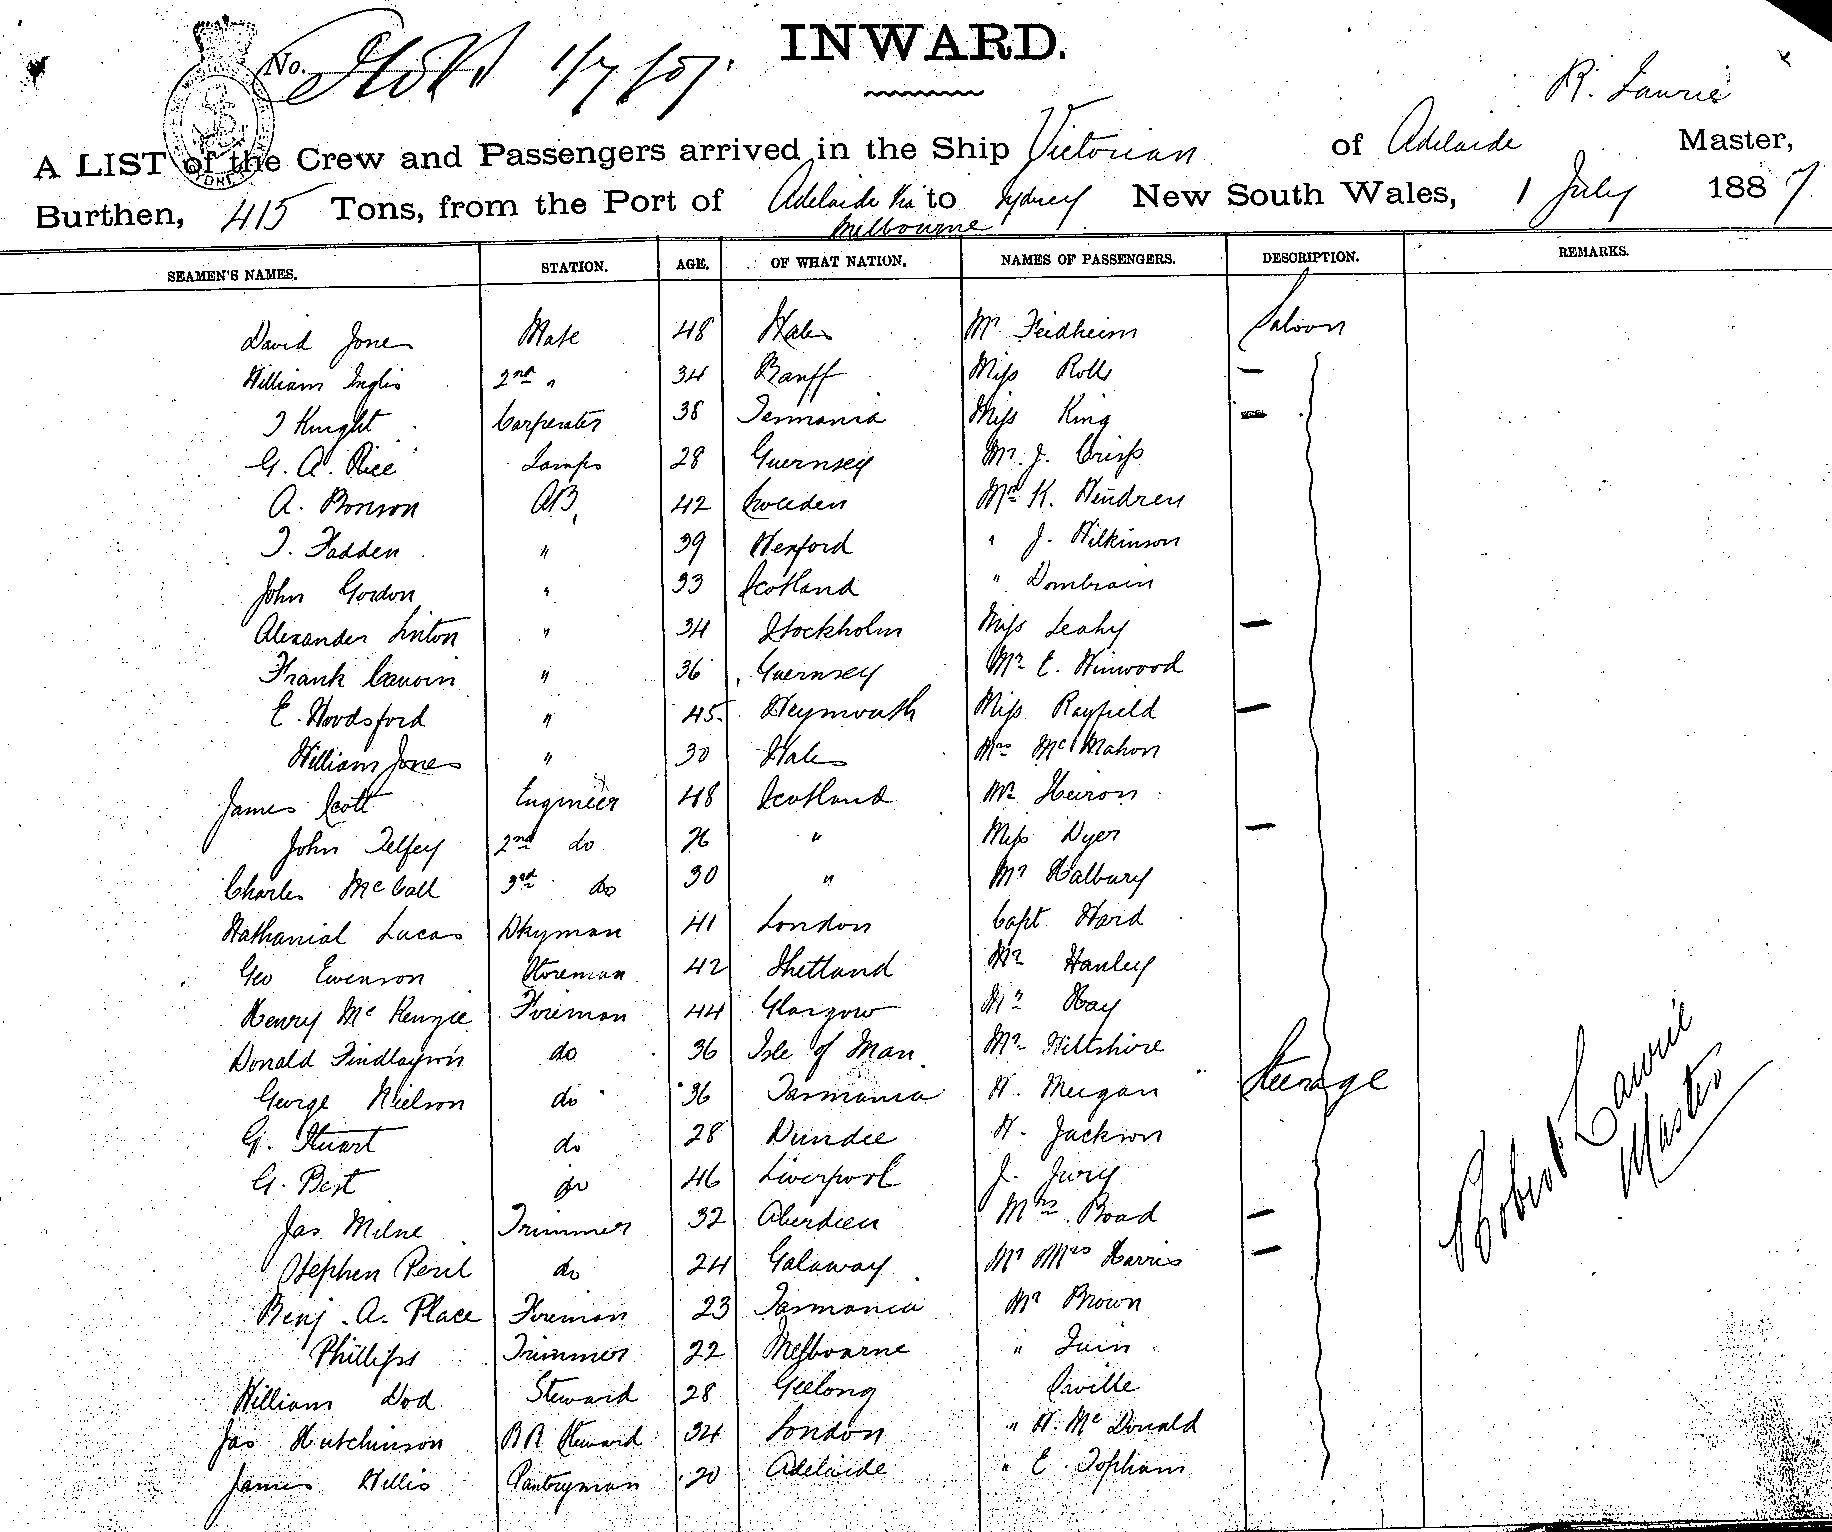 INWARD.
No. 1/7/87.
R. Laurie
A LIST of the Crew and Passengers arrived in the Ship Victorian of Adelaide Master,
Burthen, 415 Tons, from the Port of Adelaide via Melbourne to Sydney New South Wales, 1 July 1887.
SEAMEN'S NAMES. STATION. AGE. OF WHAT NATION. NAMES OF PASSENGERS. DESCRIPTION. REMARKS.
David Jones Mate 48 Wales Mr Feidheim Saloon
William Inglis 2nd " 34 Banff Miss Rolls —
T Knight Carpenter 38 Tasmania Miss King —
G. A. Rice Lamps 28 Guernsey Mr. J. Crisp
A. Bonson AB, 42 Sweden Mr K. Hendren
T. Fadden " 39 Wexford " J. Wilkinson
John Gordon " 33 Scotland " Dombrain
Alexander Linton " 34 Stockholm Miss Leahy —
Frank Cauvin " 36 Guernsey Mr E. Winwood
E. Woodsford " 45 Weymouth Miss Rayfield —
William Jones " 30 Wales Mrs McMahon
James Scott Engineer 48 Scotland Mr Heiron
John Telfey 2nd do 26 " Miss Dyer —
Charles McCall 3rd do 30 " Mr Halbury
Nathanial Lucas Dkyman 41 London Capt Ward
Geo Evenson Storeman 42 Shetland Mr Hanley
Henry McKenzie Fireman 44 Glasgow Mr Hay
Donald Findlayson do 36 Isle of Man Mr Wiltshire
George Nielson do 36 Tasmania W. Meegan Steerage
G. Stuart do 28 Dundee W. Jackson
G. Best do 46 Liverpool J. Jury
Jas Milne Trimmer 32 Aberdeen Mrs Boad —
Stephen Peril do 24 Galaway Mr Mrs Harris —
Benj. A. Place Fireman 23 Tasmania Mr Brown
Phillips Trimmer 22 Melbourne "
William Dod Steward 28 Geelong Orville
Jas Hutchinson BR Steward 34 London " W. McDonald
James Willis Pantryman 20 Adelaide " E. Topham
Robert Laurie
Master